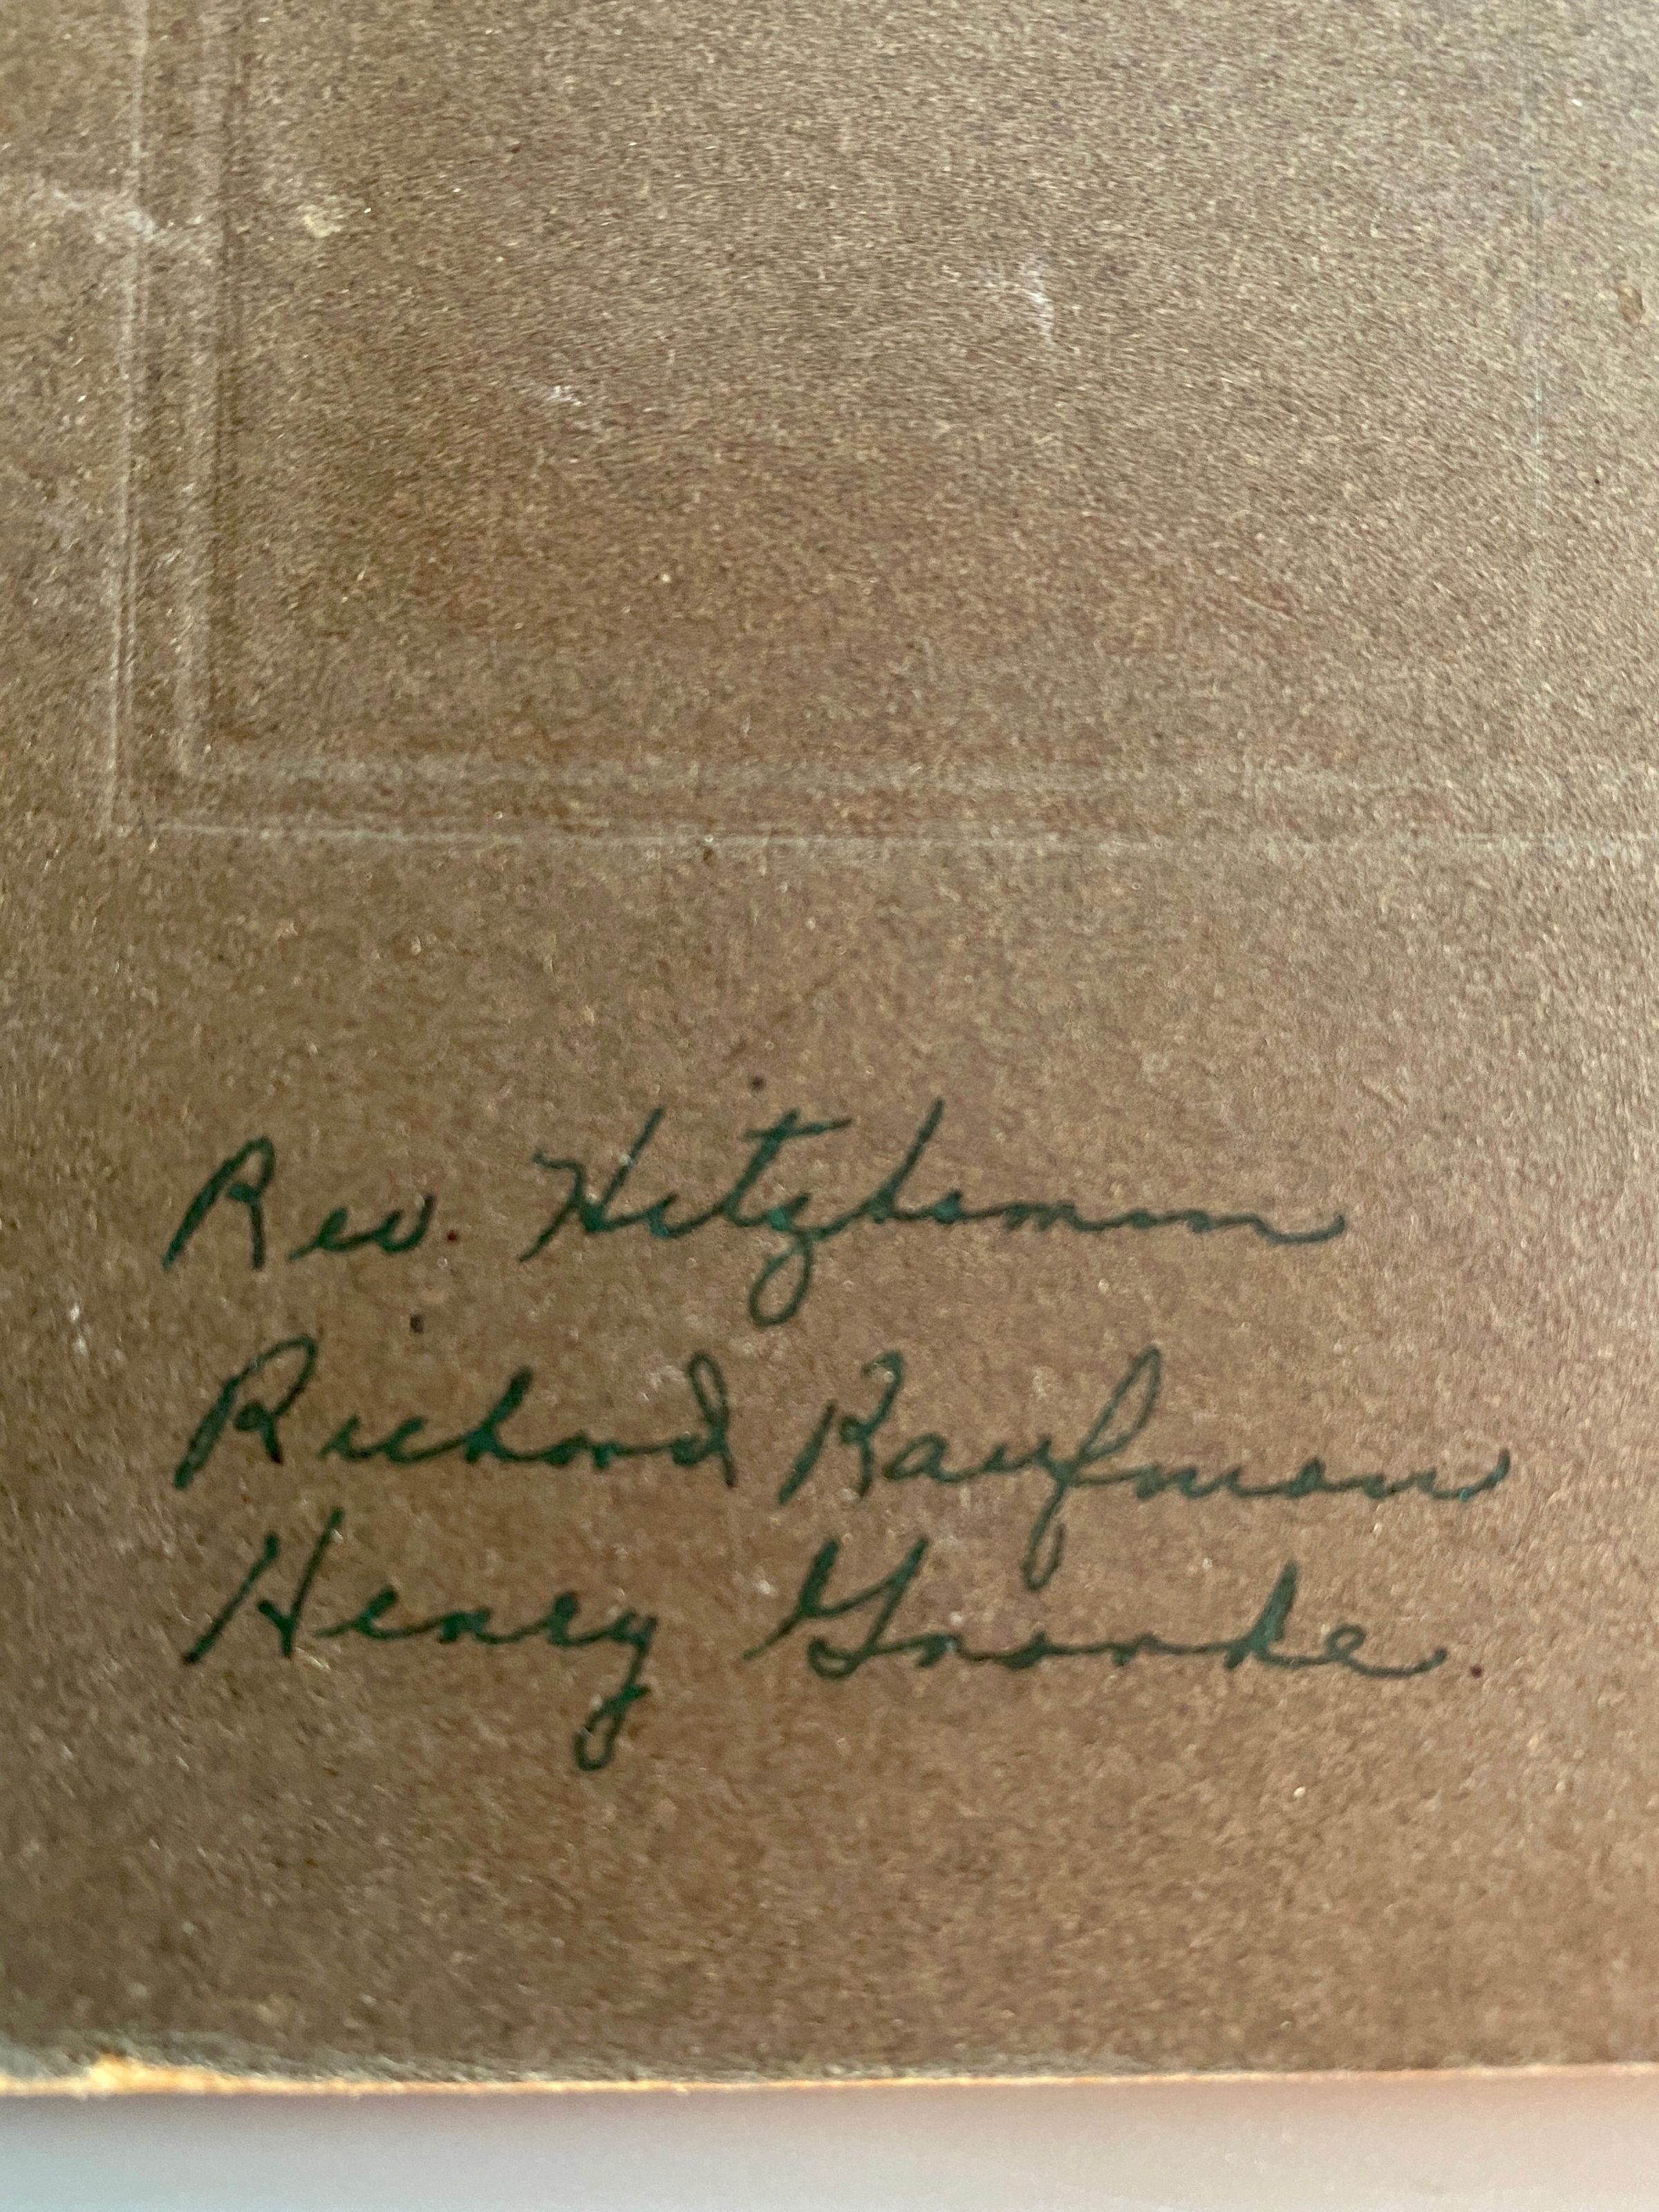 Rev. Hitzhaman
Richard Kaufman
Henry Gronke